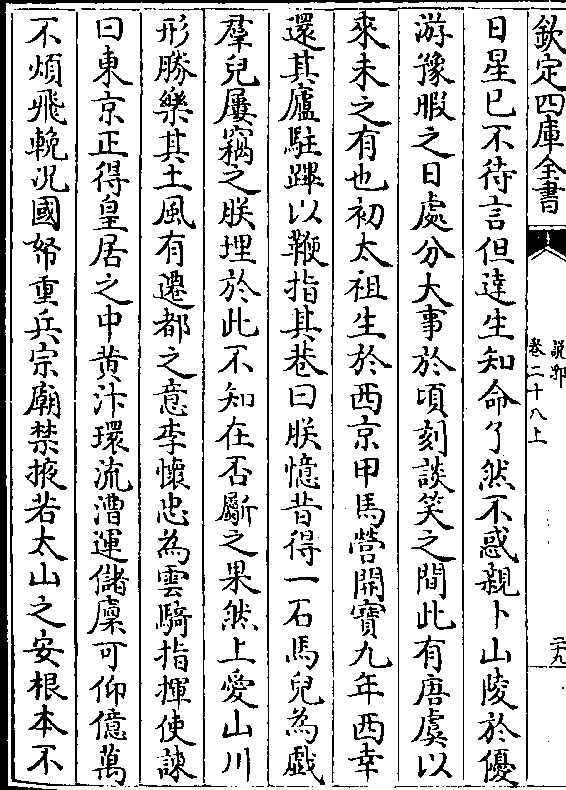 欽定四庫全書
說郛
卷二十八上
二十九
日星已不待言但達生知命了然不惑親卜山陵於優
游豫暇之日處分大事於頃刻談笑之間此有唐虞以
來未之有也初太祖生於西京甲馬營開寶九年西幸
還其廬駐蹕以鞭指其巷曰朕憶昔得一石馬兒為戯
羣兒屢竊之朕埋於此不知在否斸之果然上愛山川
形勝樂其土風有遷都之意李懷忠為雲騎指揮使諫
曰東京正得皇居之中黄汴環流漕運儲廩可仰億萬
不煩飛輓况國帑重兵宗廟禁掖若太山之安根本不